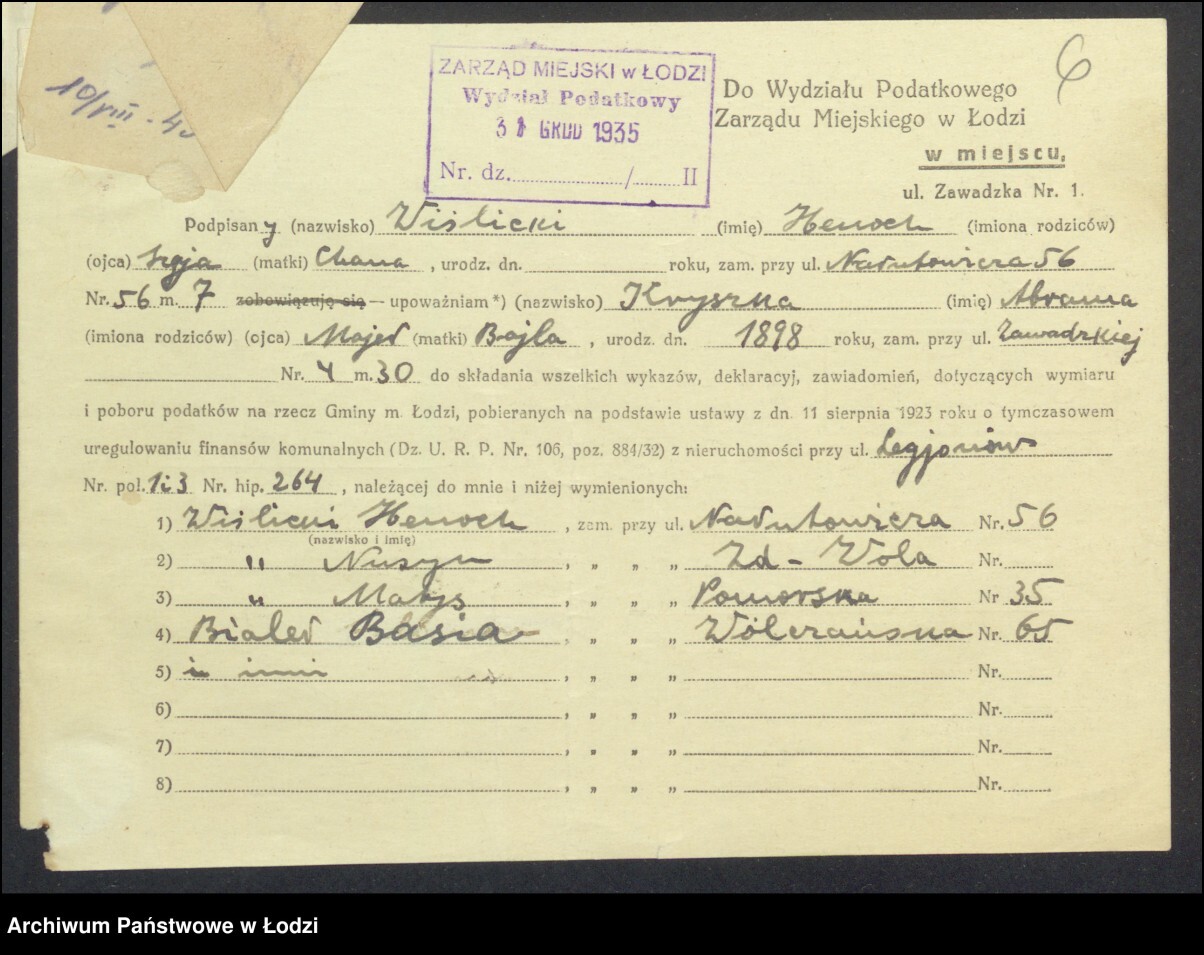 10/VIII - 40
6
ZARZĄD MIEJSKI w ŁODZI
Wydział Podatkowy
31 GRUD 1935
Nr. dz. / II
Do Wydziału Podatkowego
Zarządu Miejskiego w Łodzi
w miejscu,
ul. Zawadzka Nr. 1.
Podpisany (nazwisko) Wiślicki (imię) Henoch (imiona rodziców)
(ojca) (matki) Chana, urodz. dn. roku, zam. przy ul. Narutowicza 56
Nr. 56 m. 7 zobowiązuję się — upoważniam *) (nazwisko) Kryszka (imię) Abrama
(imiona rodziców) (ojca) Majer (matki) Bajla, urodz. dn. 1898 roku, zam. przy ul. Zawadzkiej
Nr. 4 m. 30 do składania wszelkich wykazów, deklaracyj, zawiadomień, dotyczących wymiaru
i poboru podatków na rzecz Gminy m. Łodzi, pobieranych na podstawie ustawy z dn. 11 sierpnia 1923 roku o tymczasowem
uregulowaniu finansów komunalnych (Dz. U. R. P. Nr. 106, poz. 884/32) z nieruchomości przy ul. Legjonów
Nr. pol. 1i3 Nr. hip. 264, należącej do mnie i niżej wymienionych:
1) Wiślicki Henoch, zam. przy ul. Narutowicza Nr. 56
(nazwisko i imię)
2) " Nusyn, „ „ „ Zd - Wola Nr.
3) " Matys, „ „ „ Pomorska Nr 35
4) Bialer Basia, „ „ „ Wólczańska Nr. 65
5) i inni, „ „ „ Nr.
6) , „ „ „ Nr.
7) , „ „ „ Nr.
8) , „ „ „ Nr.
Archiwum Państwowe w Łodzi